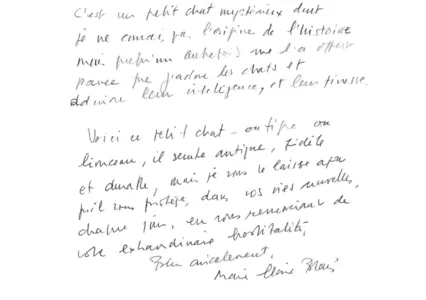 C'est un petit chat mystérieux dont
je ne connais pas l'origine de l'histoire
mais quelqu'un autrefois me l'a offert
parce que j'adore les chats et
admire leur intelligence, et leur finesse.
Voici ce petit chat - ou tigre ou
lionceau, il semble antique, fidèle
et durable, mais je vous le laisse afin
qu'il vous protège, dans vos vies nouvelles,
chaque jour, en vous remerciant de
votre extraordinaire hospitalité,
Bien amicalement,
Marie Claire